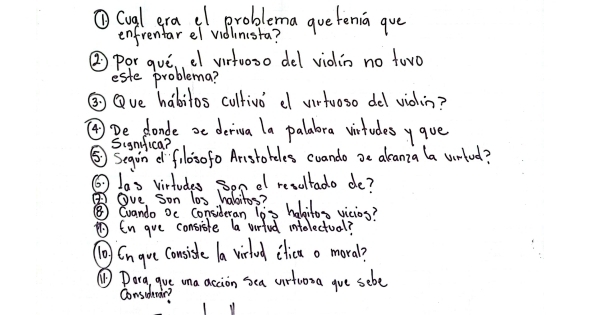 1. Cual era el problema que tenía que
enfrentar el violinista?
2. Por qué, el virtuoso del violín no tuvo
este problema?
3. Que hábitos cultivó el virtuoso del violín?
4. De donde se deriva la palabra virtudes y que
Significa?
5. Según el filósofo Aristoteles cuando se alcanza la virtud?
6. las virtudes son el resultado de?
7. Que Son los habitos?
8. Cuando se Consideran los habitos vicios?
9. En que consiste la virtud intelectual?
10. En que Consiste la virtud ética o moral?
11. Para, que una acción sea virtuosa que sebe
Considerar?